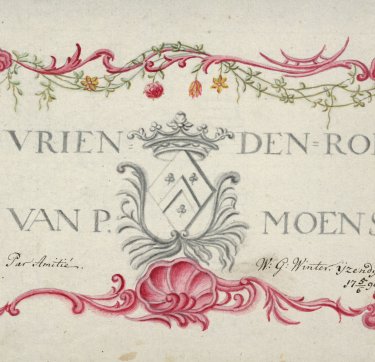 VRIEN= DEN=RO
VAN P. MOENS
Par Amitié. W. G. Winter. Yzend
17 5/6 9